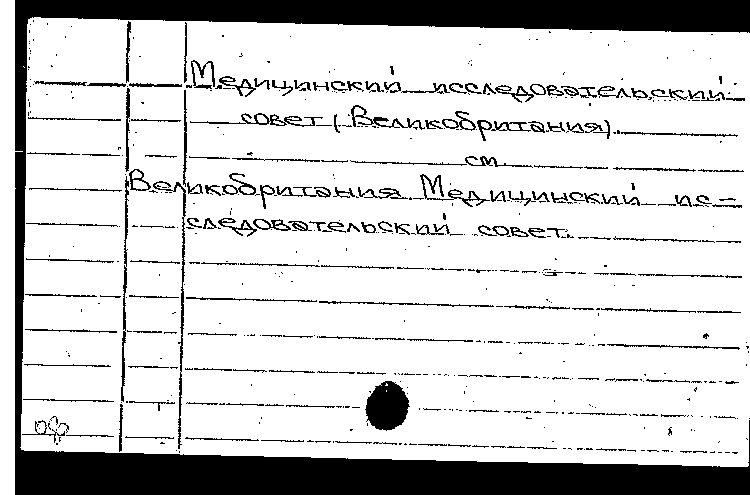 Медицинский исследовательский
совет (Великобритания).
см.
Великобритания Медицинский ис-
следовательский совет.